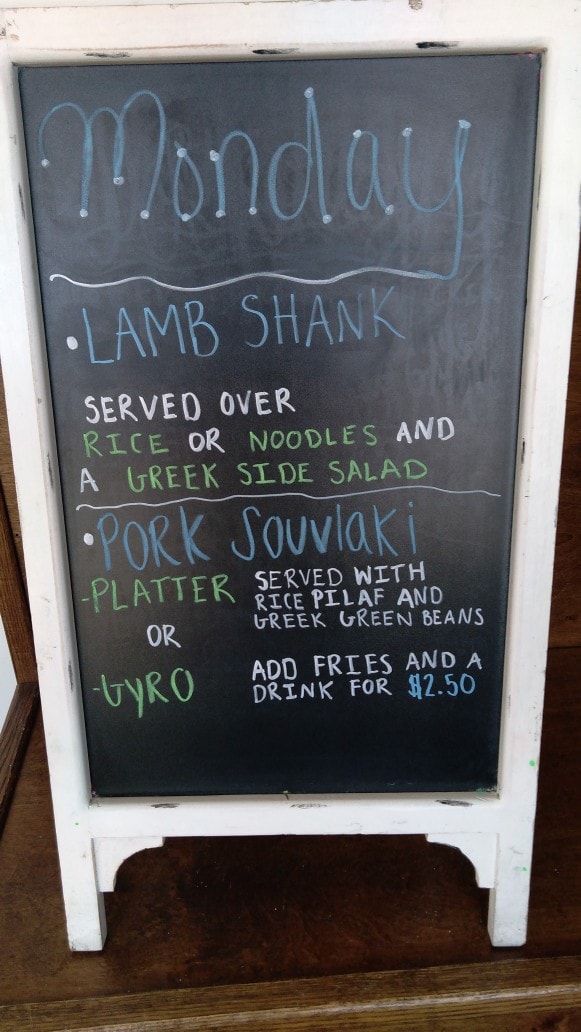 Monday
• LAMB SHANK
SERVED OVER
RICE OR NOODLES AND
A GREEK SIDE SALAD
• PORK Souvlaki
-PLATTER SERVED WITH
RICE PILAF AND
GREEK GREEN BEANS
OR
-GYRO ADD FRIES AND A
DRINK FOR $2.50